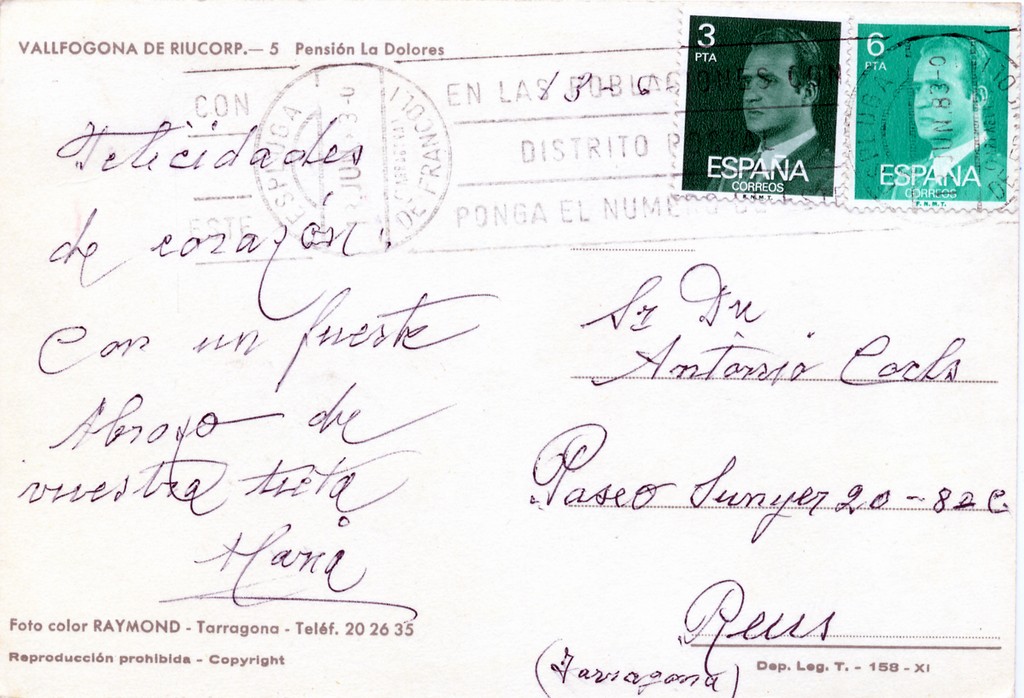 VALLFOGONA DE RIUCORP.— 5 Pensión La Dolores
CON
ESTE
EN LAS POBLACIONES CON
DISTRITO
PONGA EL NUMERO
ESPLUGA DE FRANCOLI
13-6
3
PTA
ESPAÑA
CORREOS
F.N.M.T.
6
PTA
ESPAÑA
CORREOS
F.N.M.T.
Felicidades
de corazón.
Con un fuerte
Abrazo de
vuestra tieta
Maria
Sr Dn
Antonio
Paseo Sunyer 20-8º 2 C
Reus
(Tarragona)
Foto color RAYMOND - Tarragona - Teléf. 20 26 35
Reproducción prohibida - Copyright
Dep. Leg. T. - 158 - XI